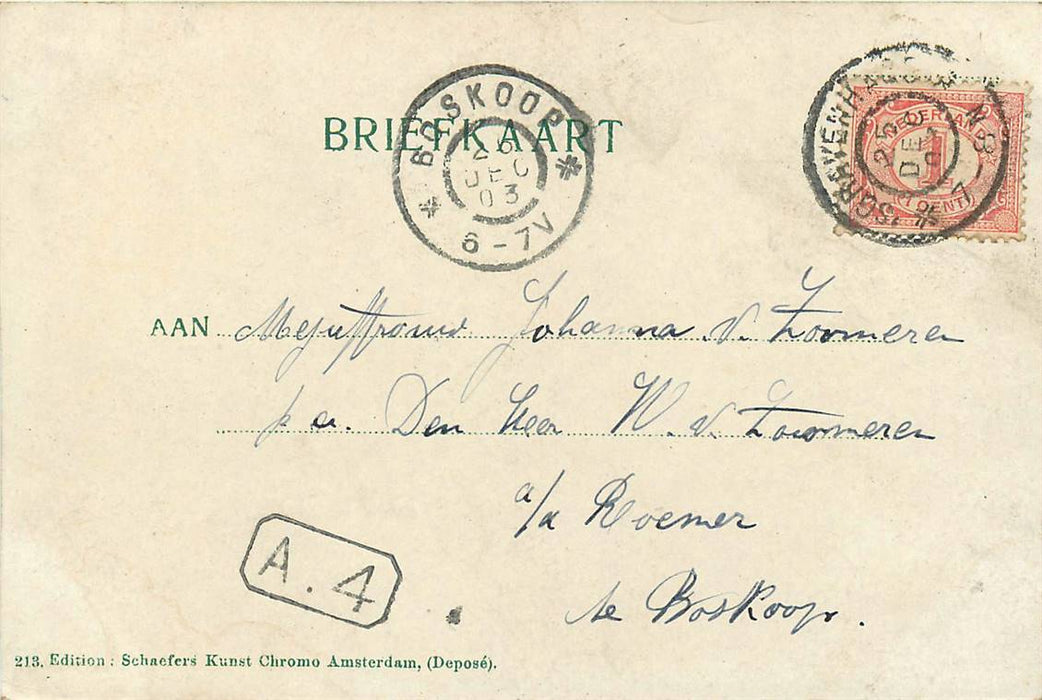 BRIEFKAART
BOSKOOP
26
DEC
03
6-7V
'SGRAVENHAGE
25
DEC
7-8N
NEDERLAND
1
1 CENT
AAN Mejuffrouw Johanna v. Zoomeren
p a. Den Heer W. v. Zoomeren
a/d Roemer
te Boskoop.
A.4
213, Edition: Schaefers Kunst Chromo Amsterdam, (Deposé).